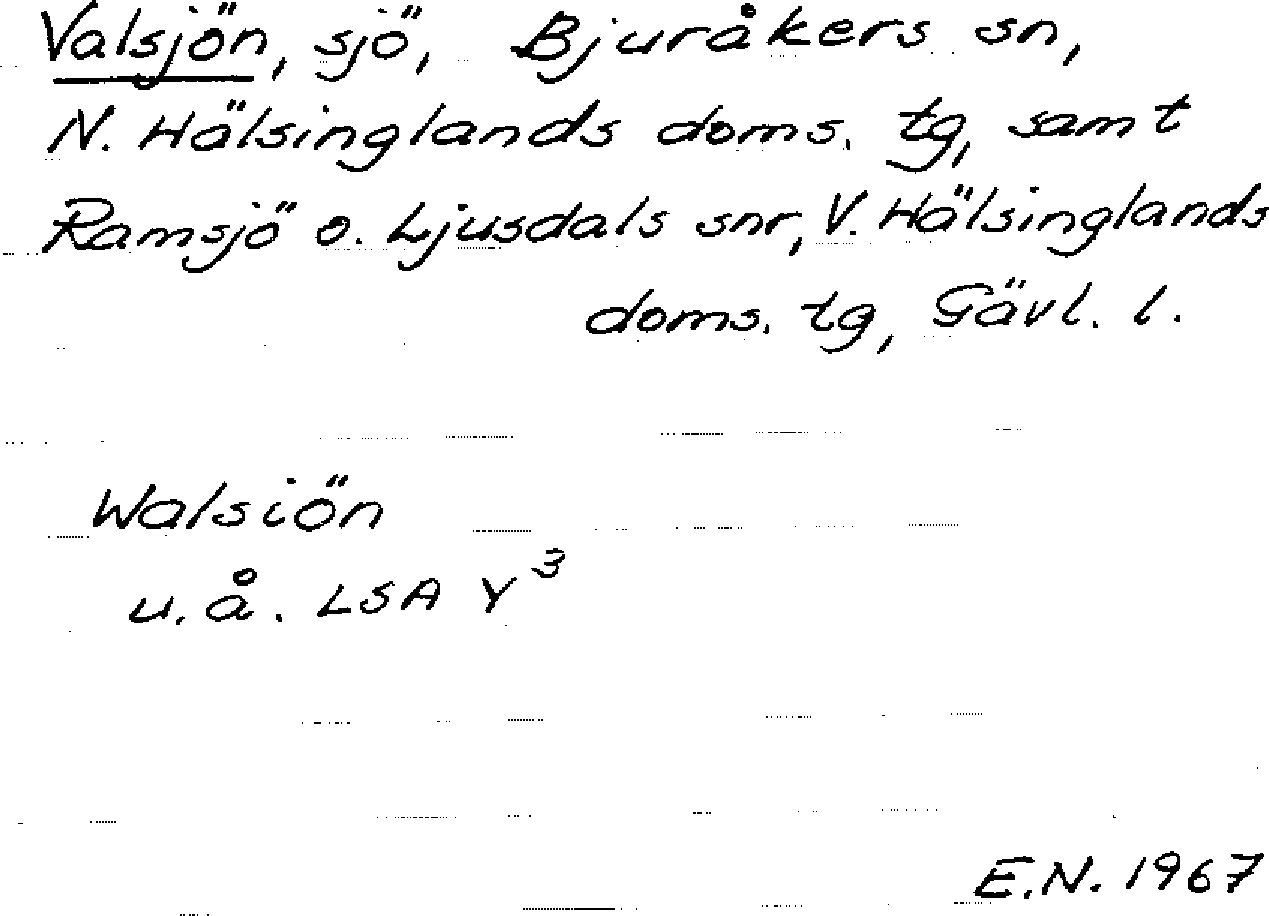 Valsjön, sjö, Bjuråkers sn,
N. Hälsinglands doms. tg, samt
Ramsjö o. Ljusdals snr, V. Hälsinglands
doms. tg, Gävl. l.
Walsiön
u. å. LSA Y³
E.N. 1967